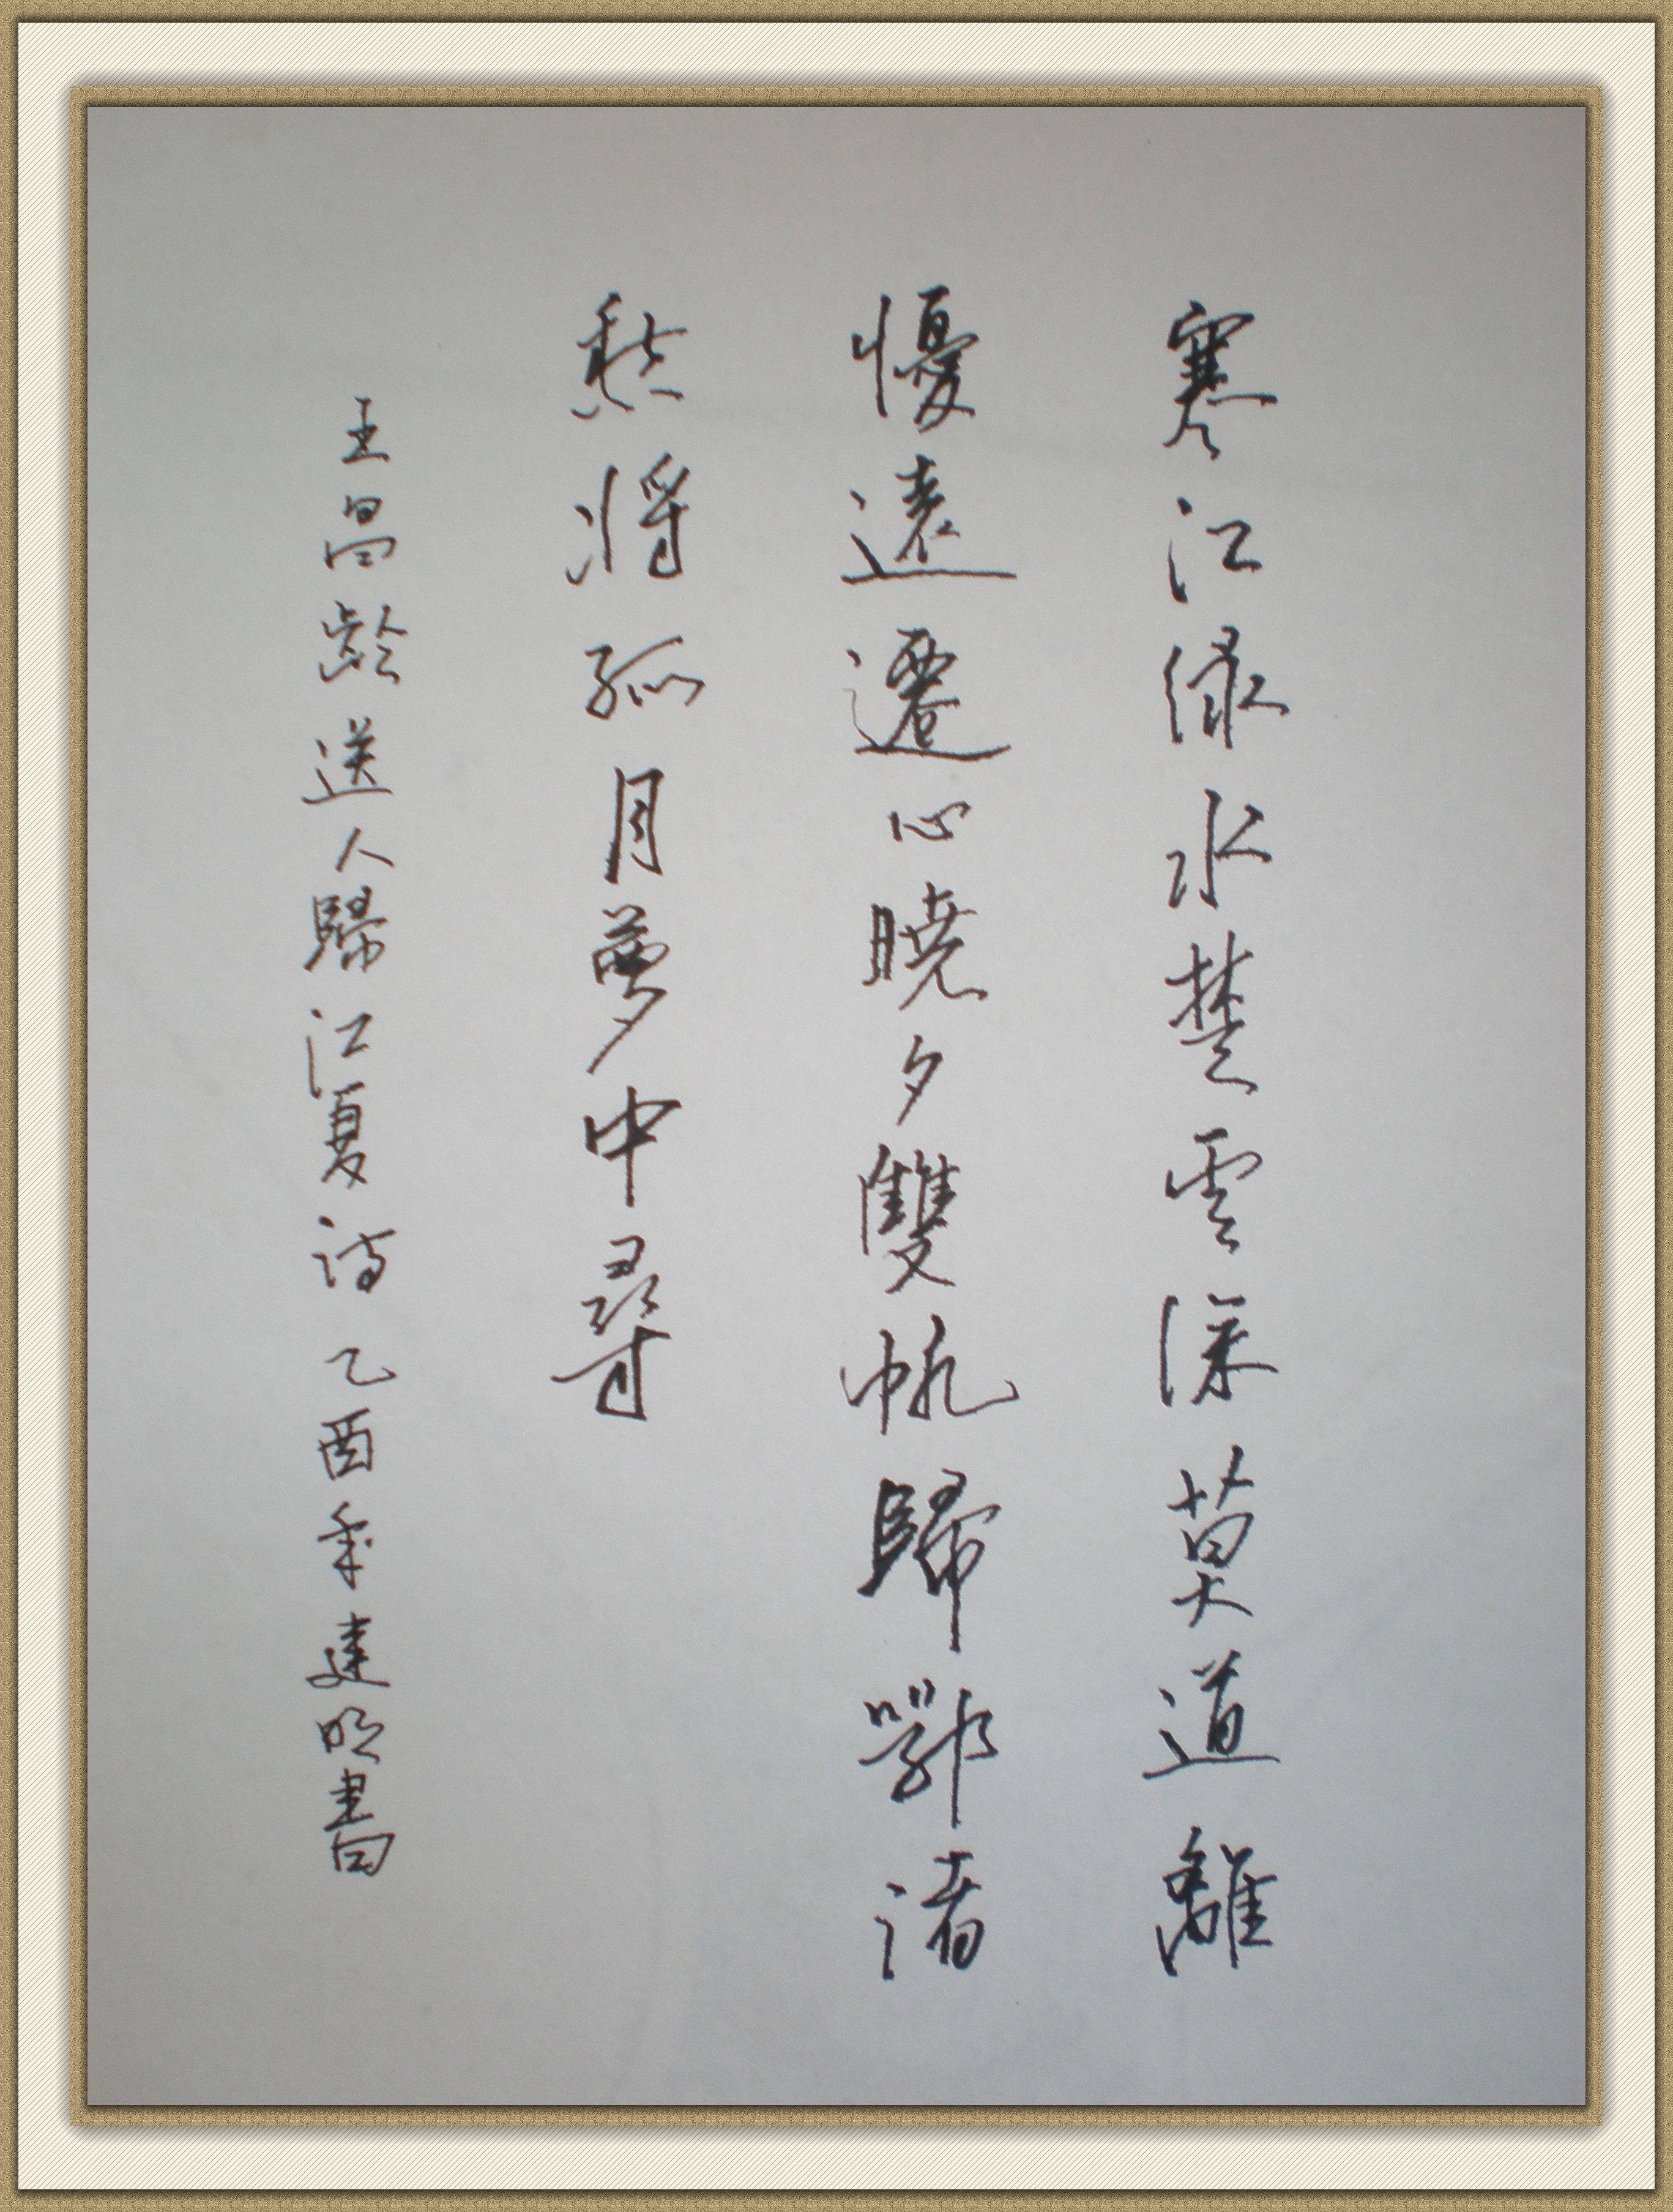 寒江绿水楚雲深莫道離
憂遠遷心曉夕雙帆歸鄂渚
愁將孤月夢中尋
王昌齡送人歸江夏詩乙酉年建明書